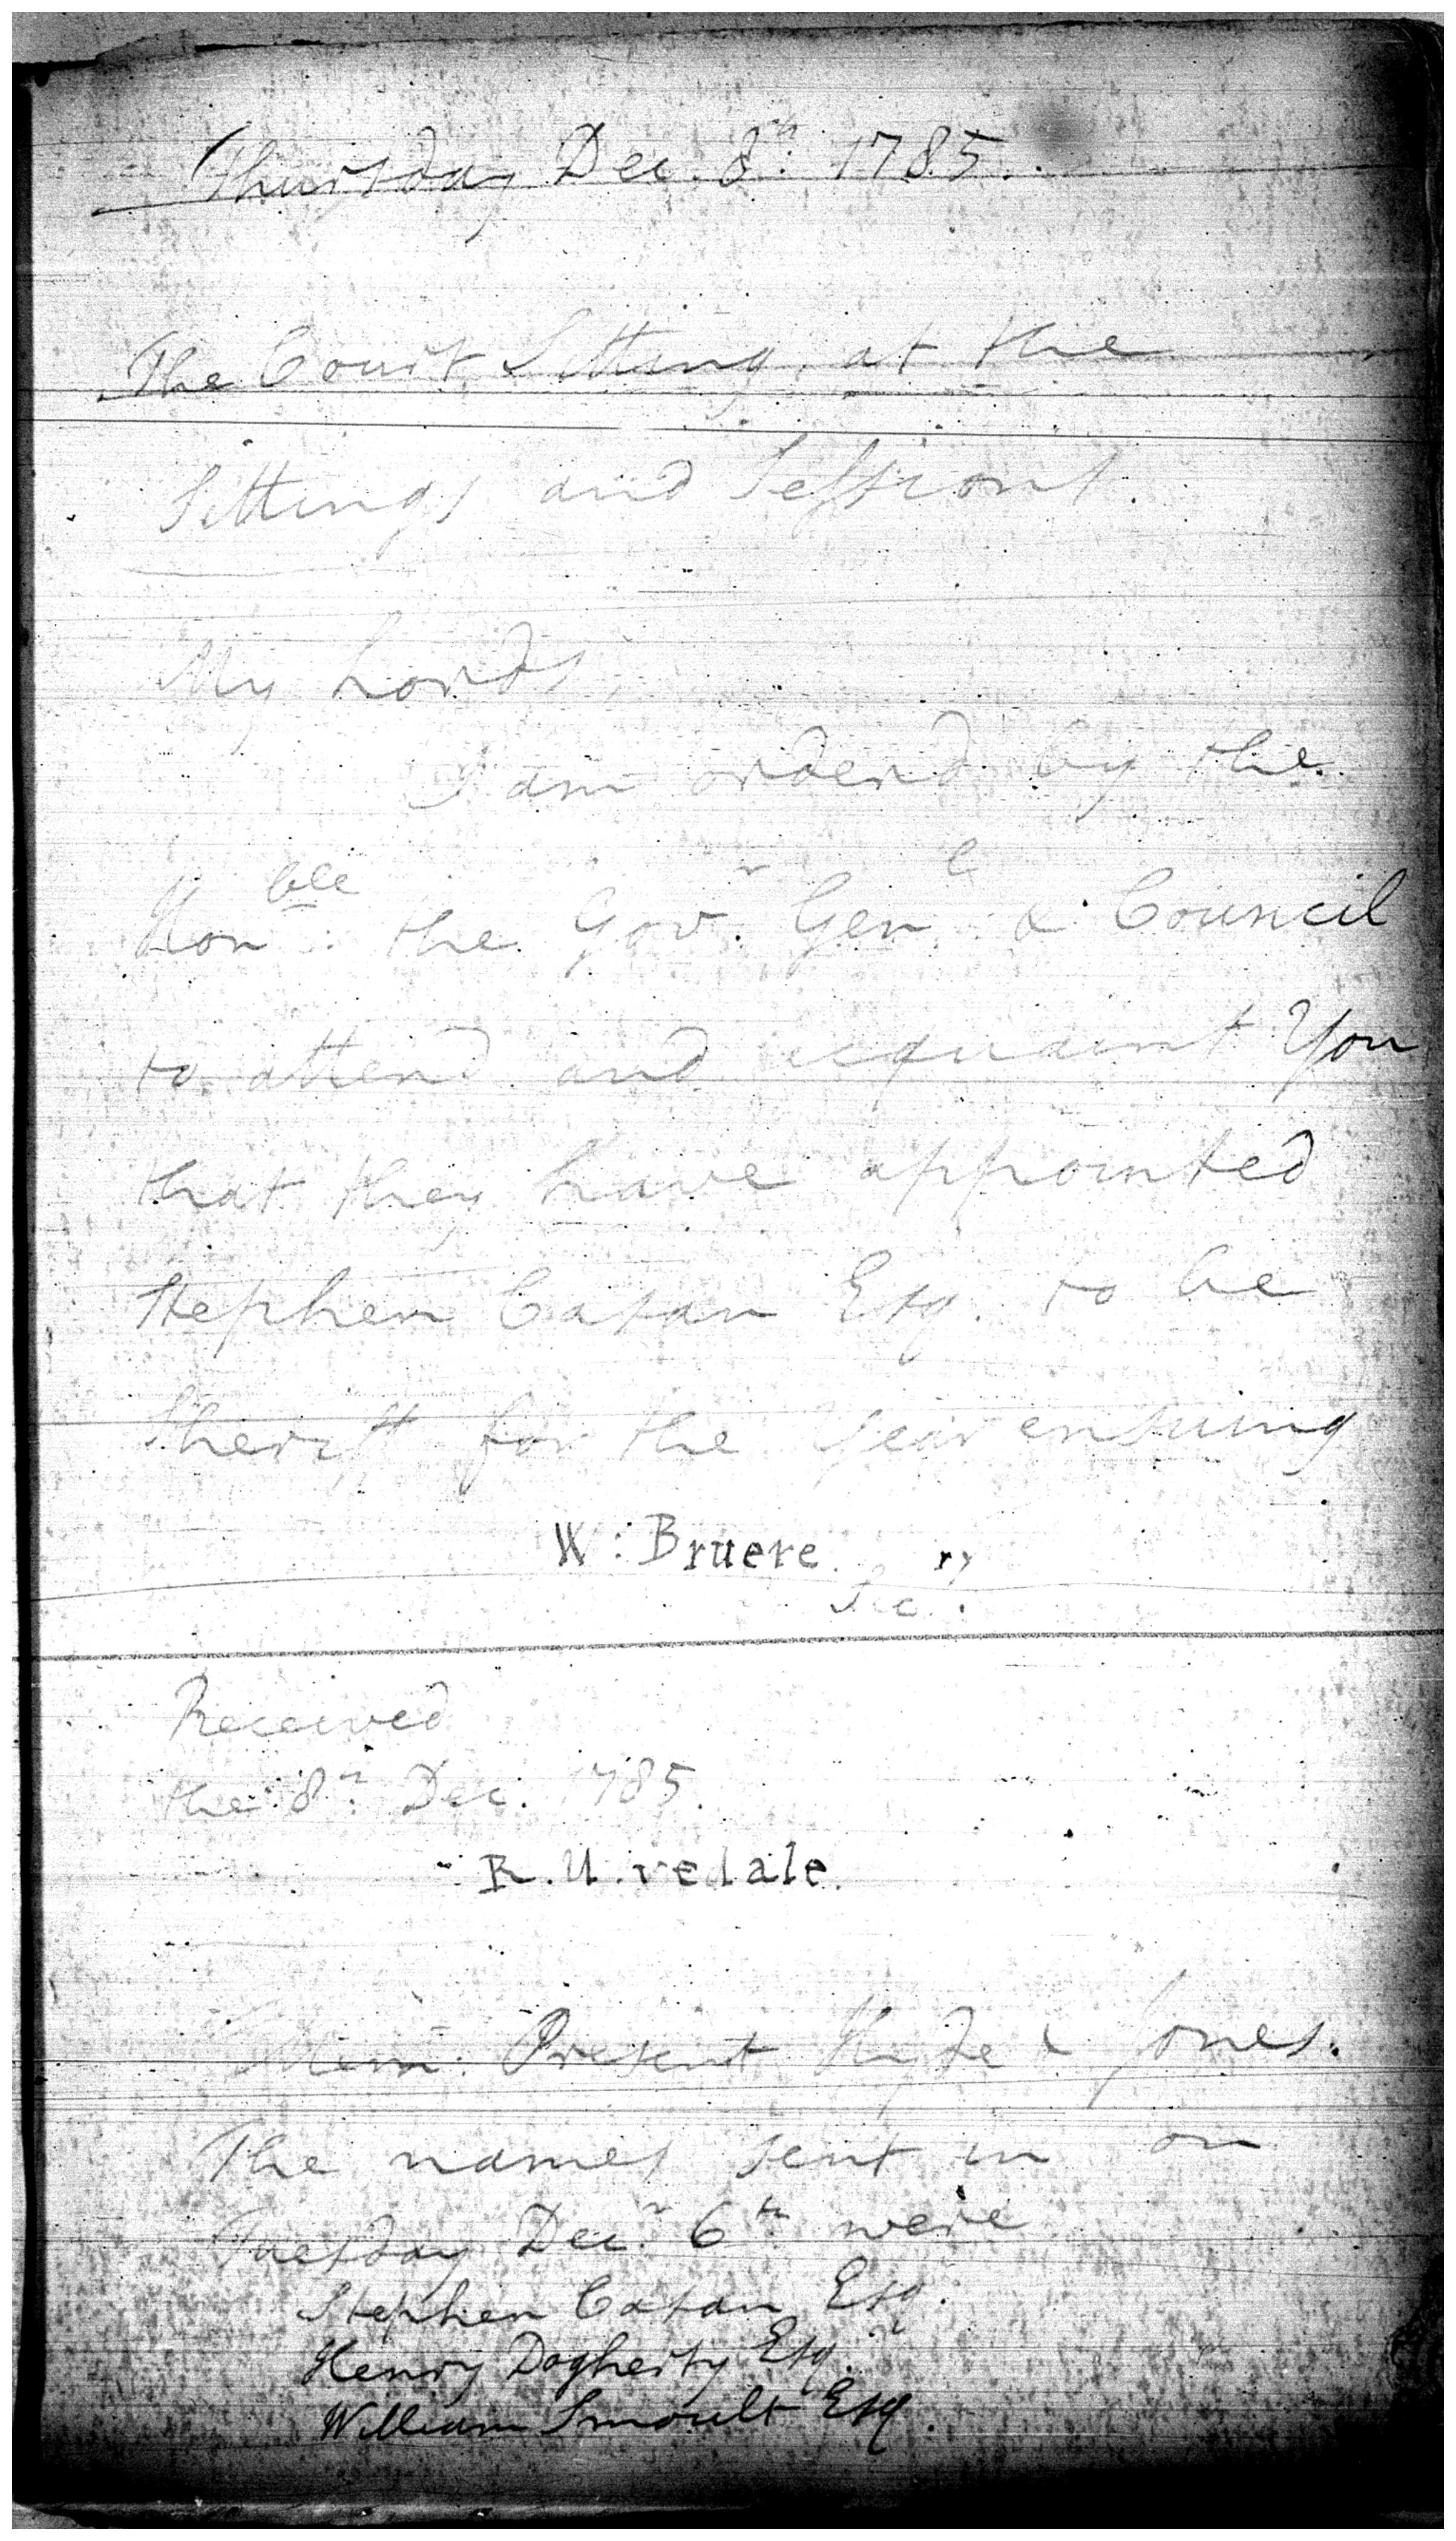 Thursday Dec. 8th: 1785.
The Court Sitting at the
Sittings and Sessions.
My Lords,
I am orderd by the
Honble: the Govr. Genl: & Council
to attend and acquaint You
that they have appointed
Stephen Casan Esq. to be
Sheriff for the Year ensuing
W: Bruere.
Secry:
Received
the 8th: Dec. 1785.
R. Uvedale.
Mem: Present Hyde & Jones.
The names sent in on
Tuesday Decr. 6th were
Stephen Casan Esq.
Henry Dogherty Esq.
William Smoult Esq.